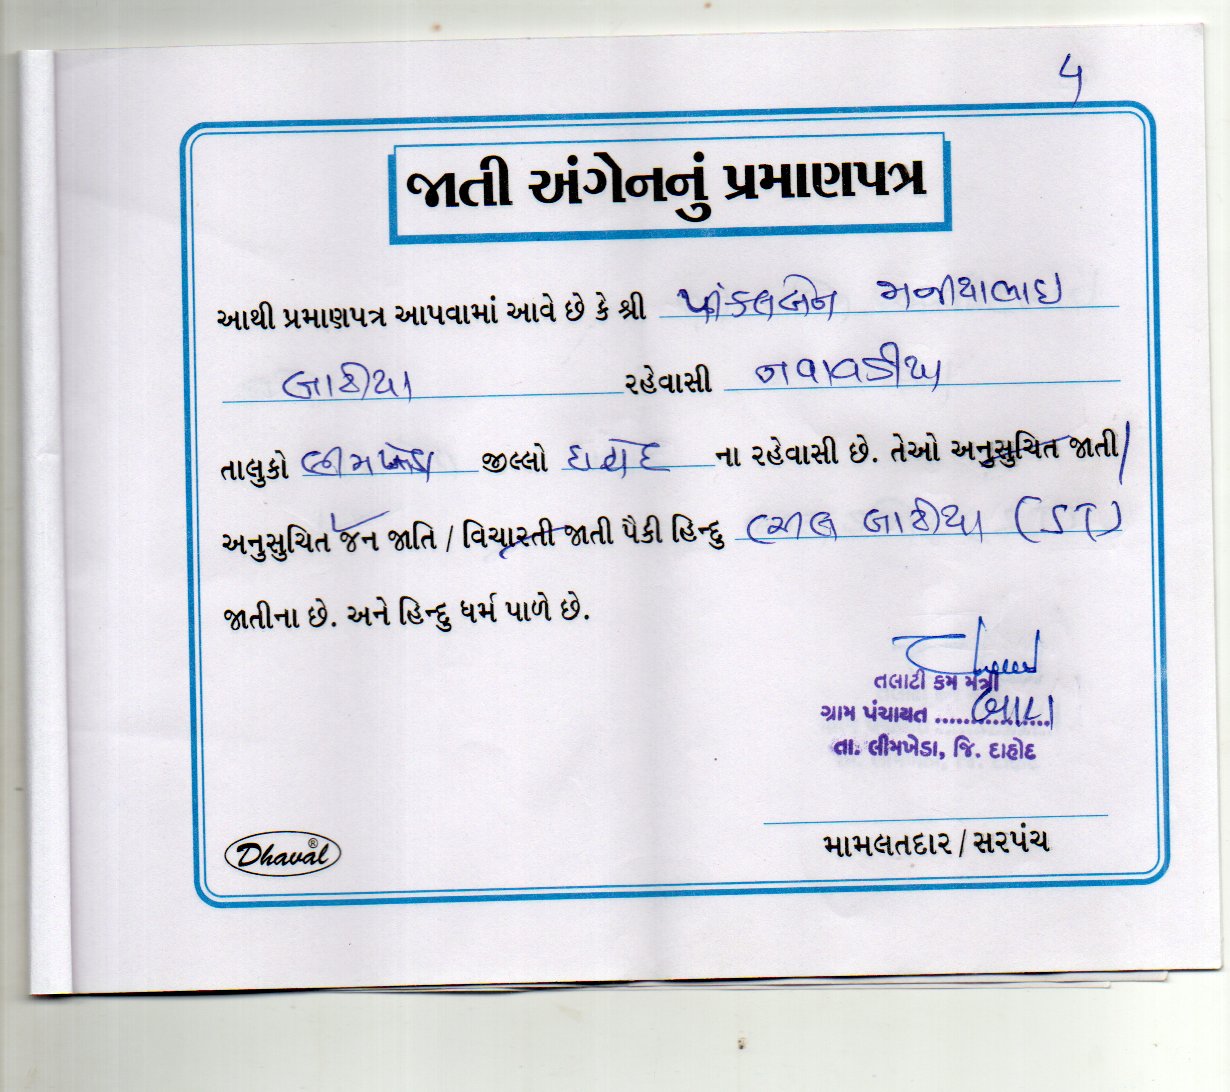 ૫
જાતી અંગેનનું પ્રમાણપત્ર
આથી પ્રમાણપત્ર આપવામાં આવે છે કે શ્રી
બારીયા રહેવાસી
તાલુકો લીમખેડા જીલ્લો દાહોદ ના રહેવાસી છે. તેઓ અનુસુચિત જાતી/
અનુસુચિત જન જાતિ / વિચારતી જાતી પૈકી હિન્દુ બારીયા (ST)
જાતીના છે. અને હિન્દુ ધર્મ પાળે છે.
તલાટી કમ મંત્રી
ગ્રામ પંચાયત ................
તા. લીમખેડા, જિ. દાહોદ
Dhaval®
મામલતદાર / સરપંચ